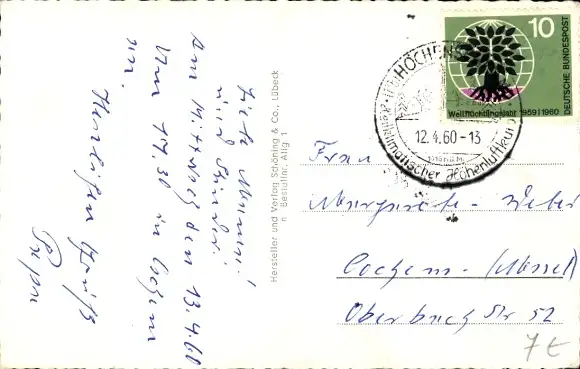 Liebe Mammi!
und Kinder.
Am Mittwoch den 13.4.60
Um 17.30 in Cochem
an.
Herzlichen Gruß
Papa
Hersteller und Verlag Schöning & Co., Lübeck
n Bestellnr. Allg 1
10
DEUTSCHE BUNDESPOST
Weltflüchtlingsjahr 1959|1960
HÖCHENS
12.4.60-13
Heilklimatischer Höhenluftkur
Frau
Margarete Weber
Cochem- (Mosel)
Oberbach Str 52
7€